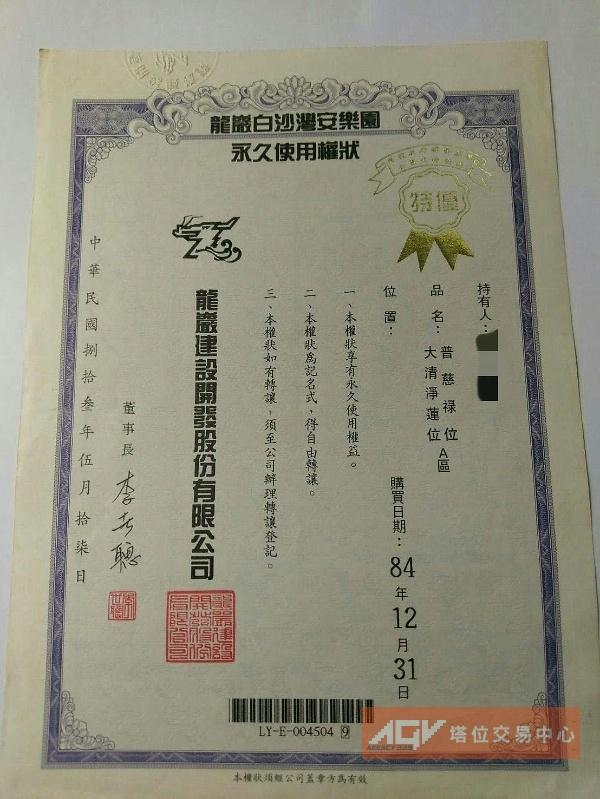 龍巖白沙灣安樂園
永久使用權狀
特優
持有人：
品名：普慈祿位
大清淨蓮位A區
位置：
購買日期：84年12月31日
一、本權狀享有永久使用權益。
二、本權狀為記名式，得自由轉讓。
三、本權狀如有轉讓，須至公司辦理轉讓登記。
龍巖建設開發股份有限公司
董事長 李世聰
中華民國捌拾叁年伍月拾柒日
LY-E-004504 9
本權狀須經公司蓋章方為有效
AGV 塔位交易中心